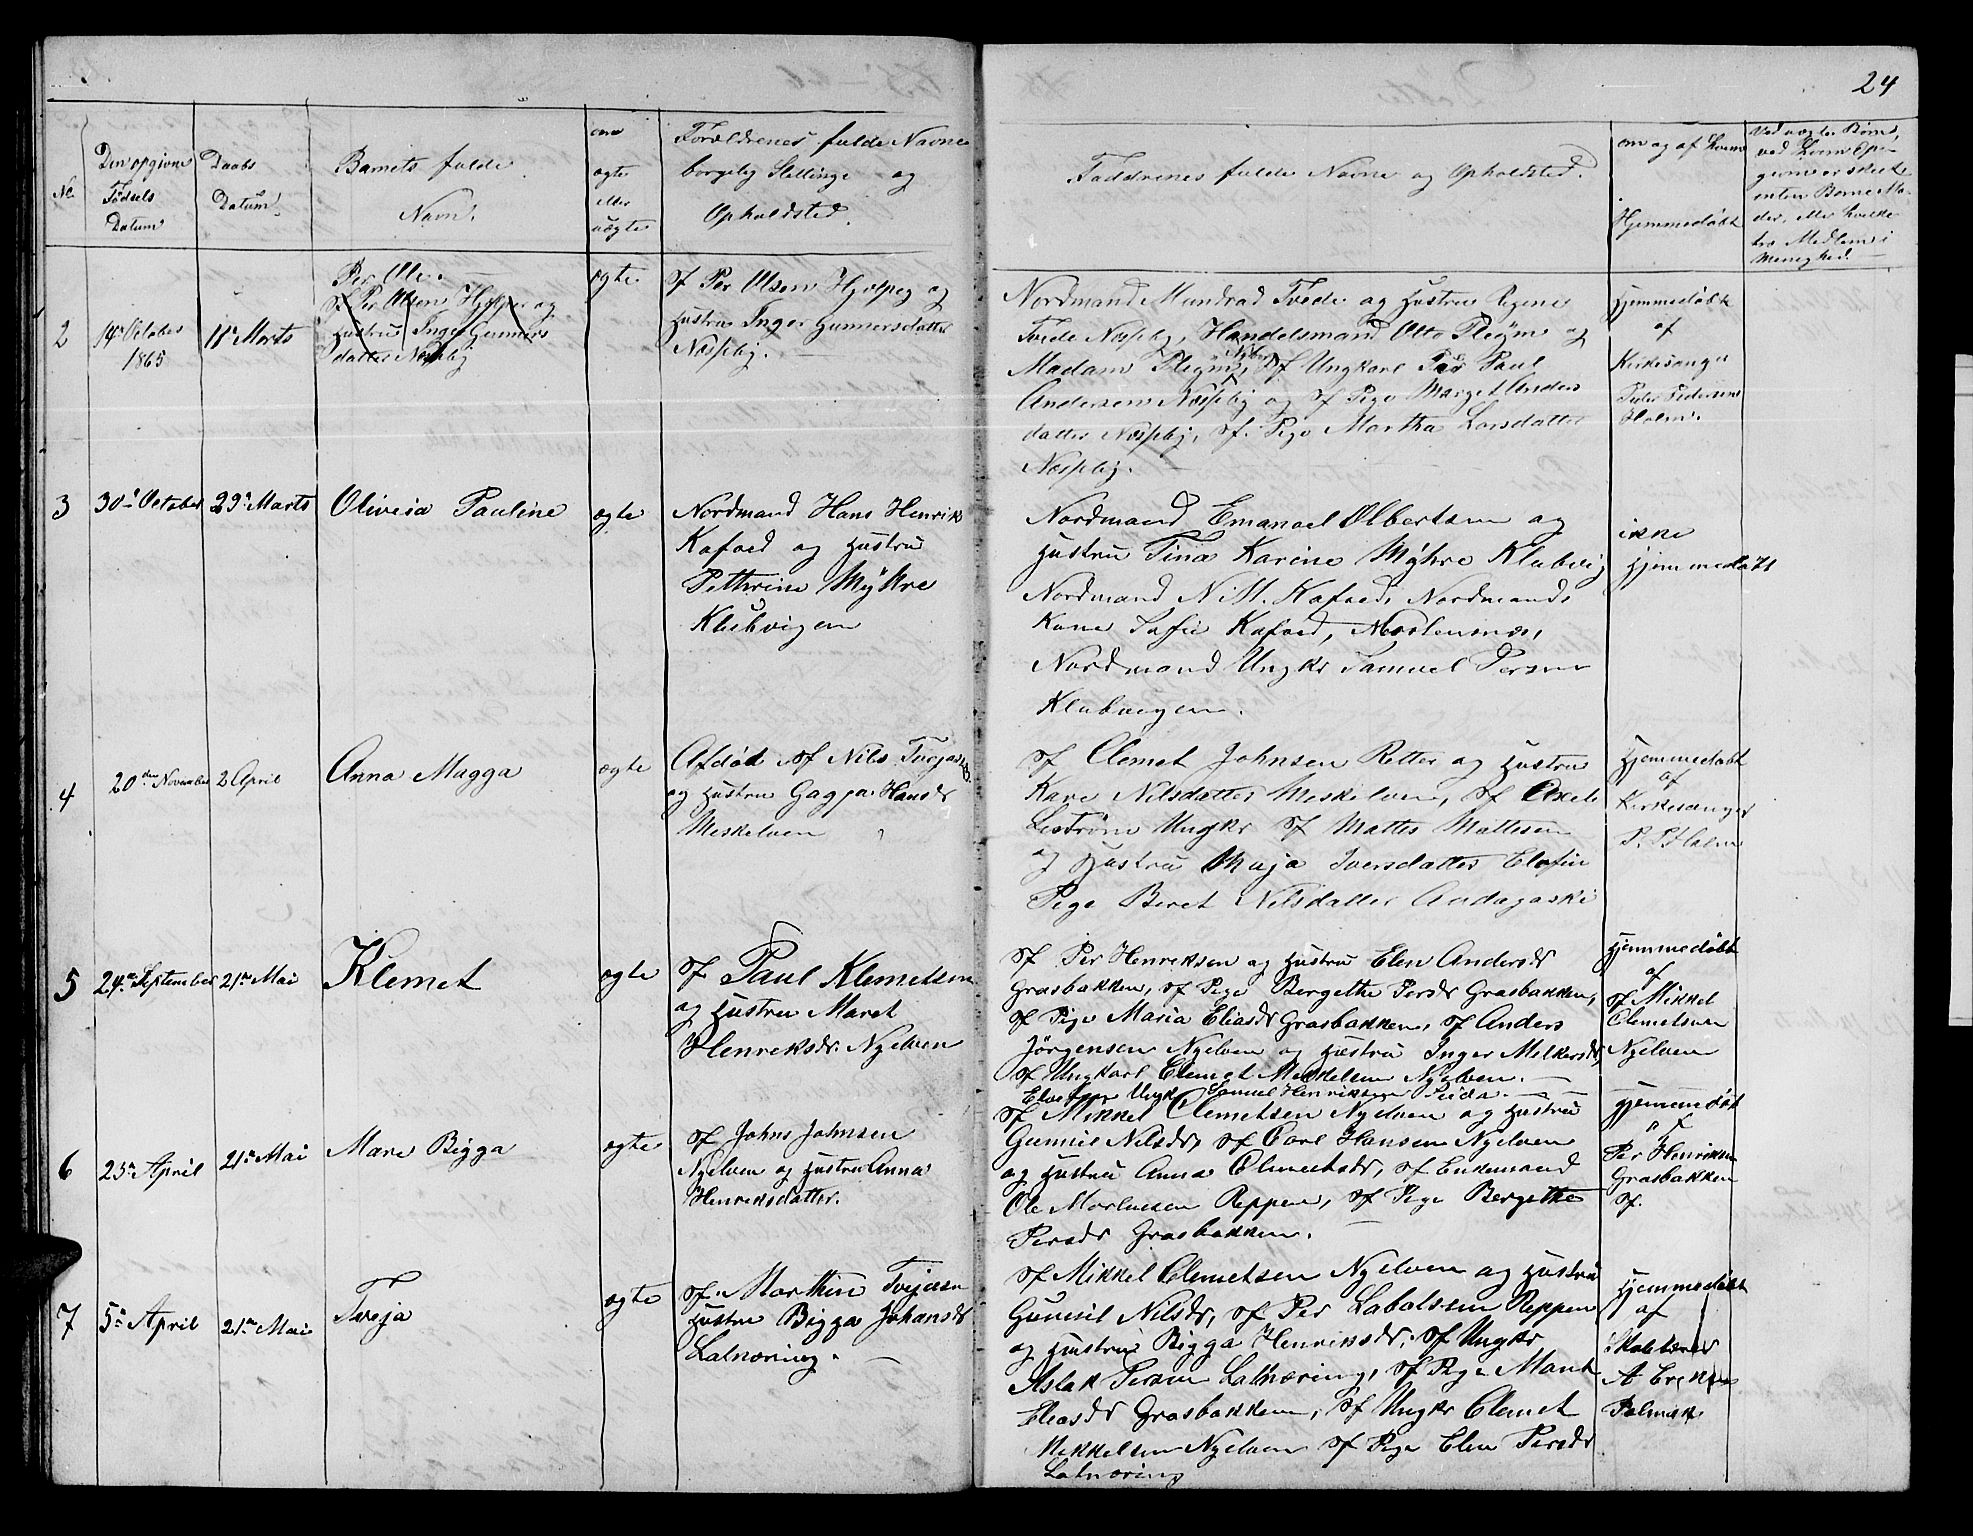 24
No
Den opgivne
Fødsels
Datum
Daabs
Datum
Barnets fulde
Navn.
om
ægte
eller
uægte
Forældrenes fulde Navne
borgelig Stellinge og
Opholdsted.
Faddrenes fulde Navne og Opholdsted.
om og af hvem
Hjemmedøbt
Ved uægte Børn,
ved hvem Opl
enten Barnets Mo
der, eller hvilke
Medlem i
Menighed.
2
14de October
1865
11te Marts
Per Ole.
Sf Per Olsen Hjelper og
Hustru Inger Gunners
datter Næsseby
ægte
Sf Per Olsen Hjelpeg og
Hustru Inger Gunnersdatter
Næsseby.
Nordmand Mundrad Tvede og Hustru Regine
Tvede Næsseby, Handelsmand Otto Flegm og
Madam Flegm Nybor, Sf Ungkarl Per Paul
Andersen Næsseby og Sf Pige Marget Anders
datter Næsseby, Sf. Pige Martha Larsdatter
Næsseby.
Hjemmedøbt
af
Kirkesanger
Peder Pedersen
Holm.
3
30te October
29de Marts
Oliveia Pauline
ægte
Nordmand Hans Henrik
Kofoed og Hustru
Pethrine Myhre
Klubvigen
Nordmand Emanoel Olbertsen og
Hustru Tina Karine Myhre Klubvig
Nordmand Kofoed, Nordmands
Kone Sofie Kofoed, Mortensnæs,
Nordmand Ungkr Samuel Persen
Klubvigen.
ikke
Hjemmedøbt
4
20den November
2 April
Anna Magga
ægte
Afdød Sf Nils Tvejasen
og Hustru Gagga Hansdr
Meskelven
Sf Clemet Johnsen Retter og Hustru
Kare Nilsdatter Meskelven, Sf Axele
Leström Ungkr Sf Mattes Mattesen
og Hustru Maja Iversdatter
Pige Beret Nilsdatter Andagaski
Hjemmedøbt
af
Kirkesanger
P. P. Holm
5
24de September
21de Mai
Klemet
ægte
Sf Paul Klemetsen
og Hustru Maret
Henreksdr. Nyelven
Sf Per Henriksen og Hustru Elen Andersdr
Grasbakken, Sf Pige Bergethe Persdr Grasbakken,
Sf Pige Maria Eliasdr Grasbakken, Sf Anders
Jörgensen Nyelven og Hustru Inger Mikkersdr,
Sf Ungkarl Clemet Mikkelsen Nyelven.
Ungk Samuel Henriksen
Hjemmedøbt
af
Sf Mikkel
Clemetsen
Nyelven
6
23de April
21de Mai
Mare Bigga
ægte
Sf Johns Johnsen
Nyelven og Hustru Anna
Henreksdatter.
Sf Mikkel Clemetsen Nyelven og Hustru
Gunnil Nilsdr, Sf Carl Hansen Nyelven
og Hustru Anna Clemetsdr, Sf Enkemand
Ole Mortensen Reppen, Sf Pige Bergethe
Persdr Grasbakken.
Hjemmedøbt
af
Per Henriksen
Grasbakken
Sf.
7
5te April
21de Mai
Tveja
ægte
Sf. Marthin Tvejasen
Hustru Bigga Johansdr
Latnæring.
Sf Mikkel Clemetsen Nyelven og Hustru
Gunnil Nilsdr, Sf Per Labatssen Reppen
og Hustru Bigga Henriksdr, Sf Ungkr
Aslak Persen Latnæring, Sf Pige Maret
Eliasdr Grasbakken, Sf Ungkr Clemet
Mikkelsen Nyelven Sf Pige Elen Persdr
Latnæring
Hjemmedøbt
af
Skolelærer
A Ereksen
Polmak